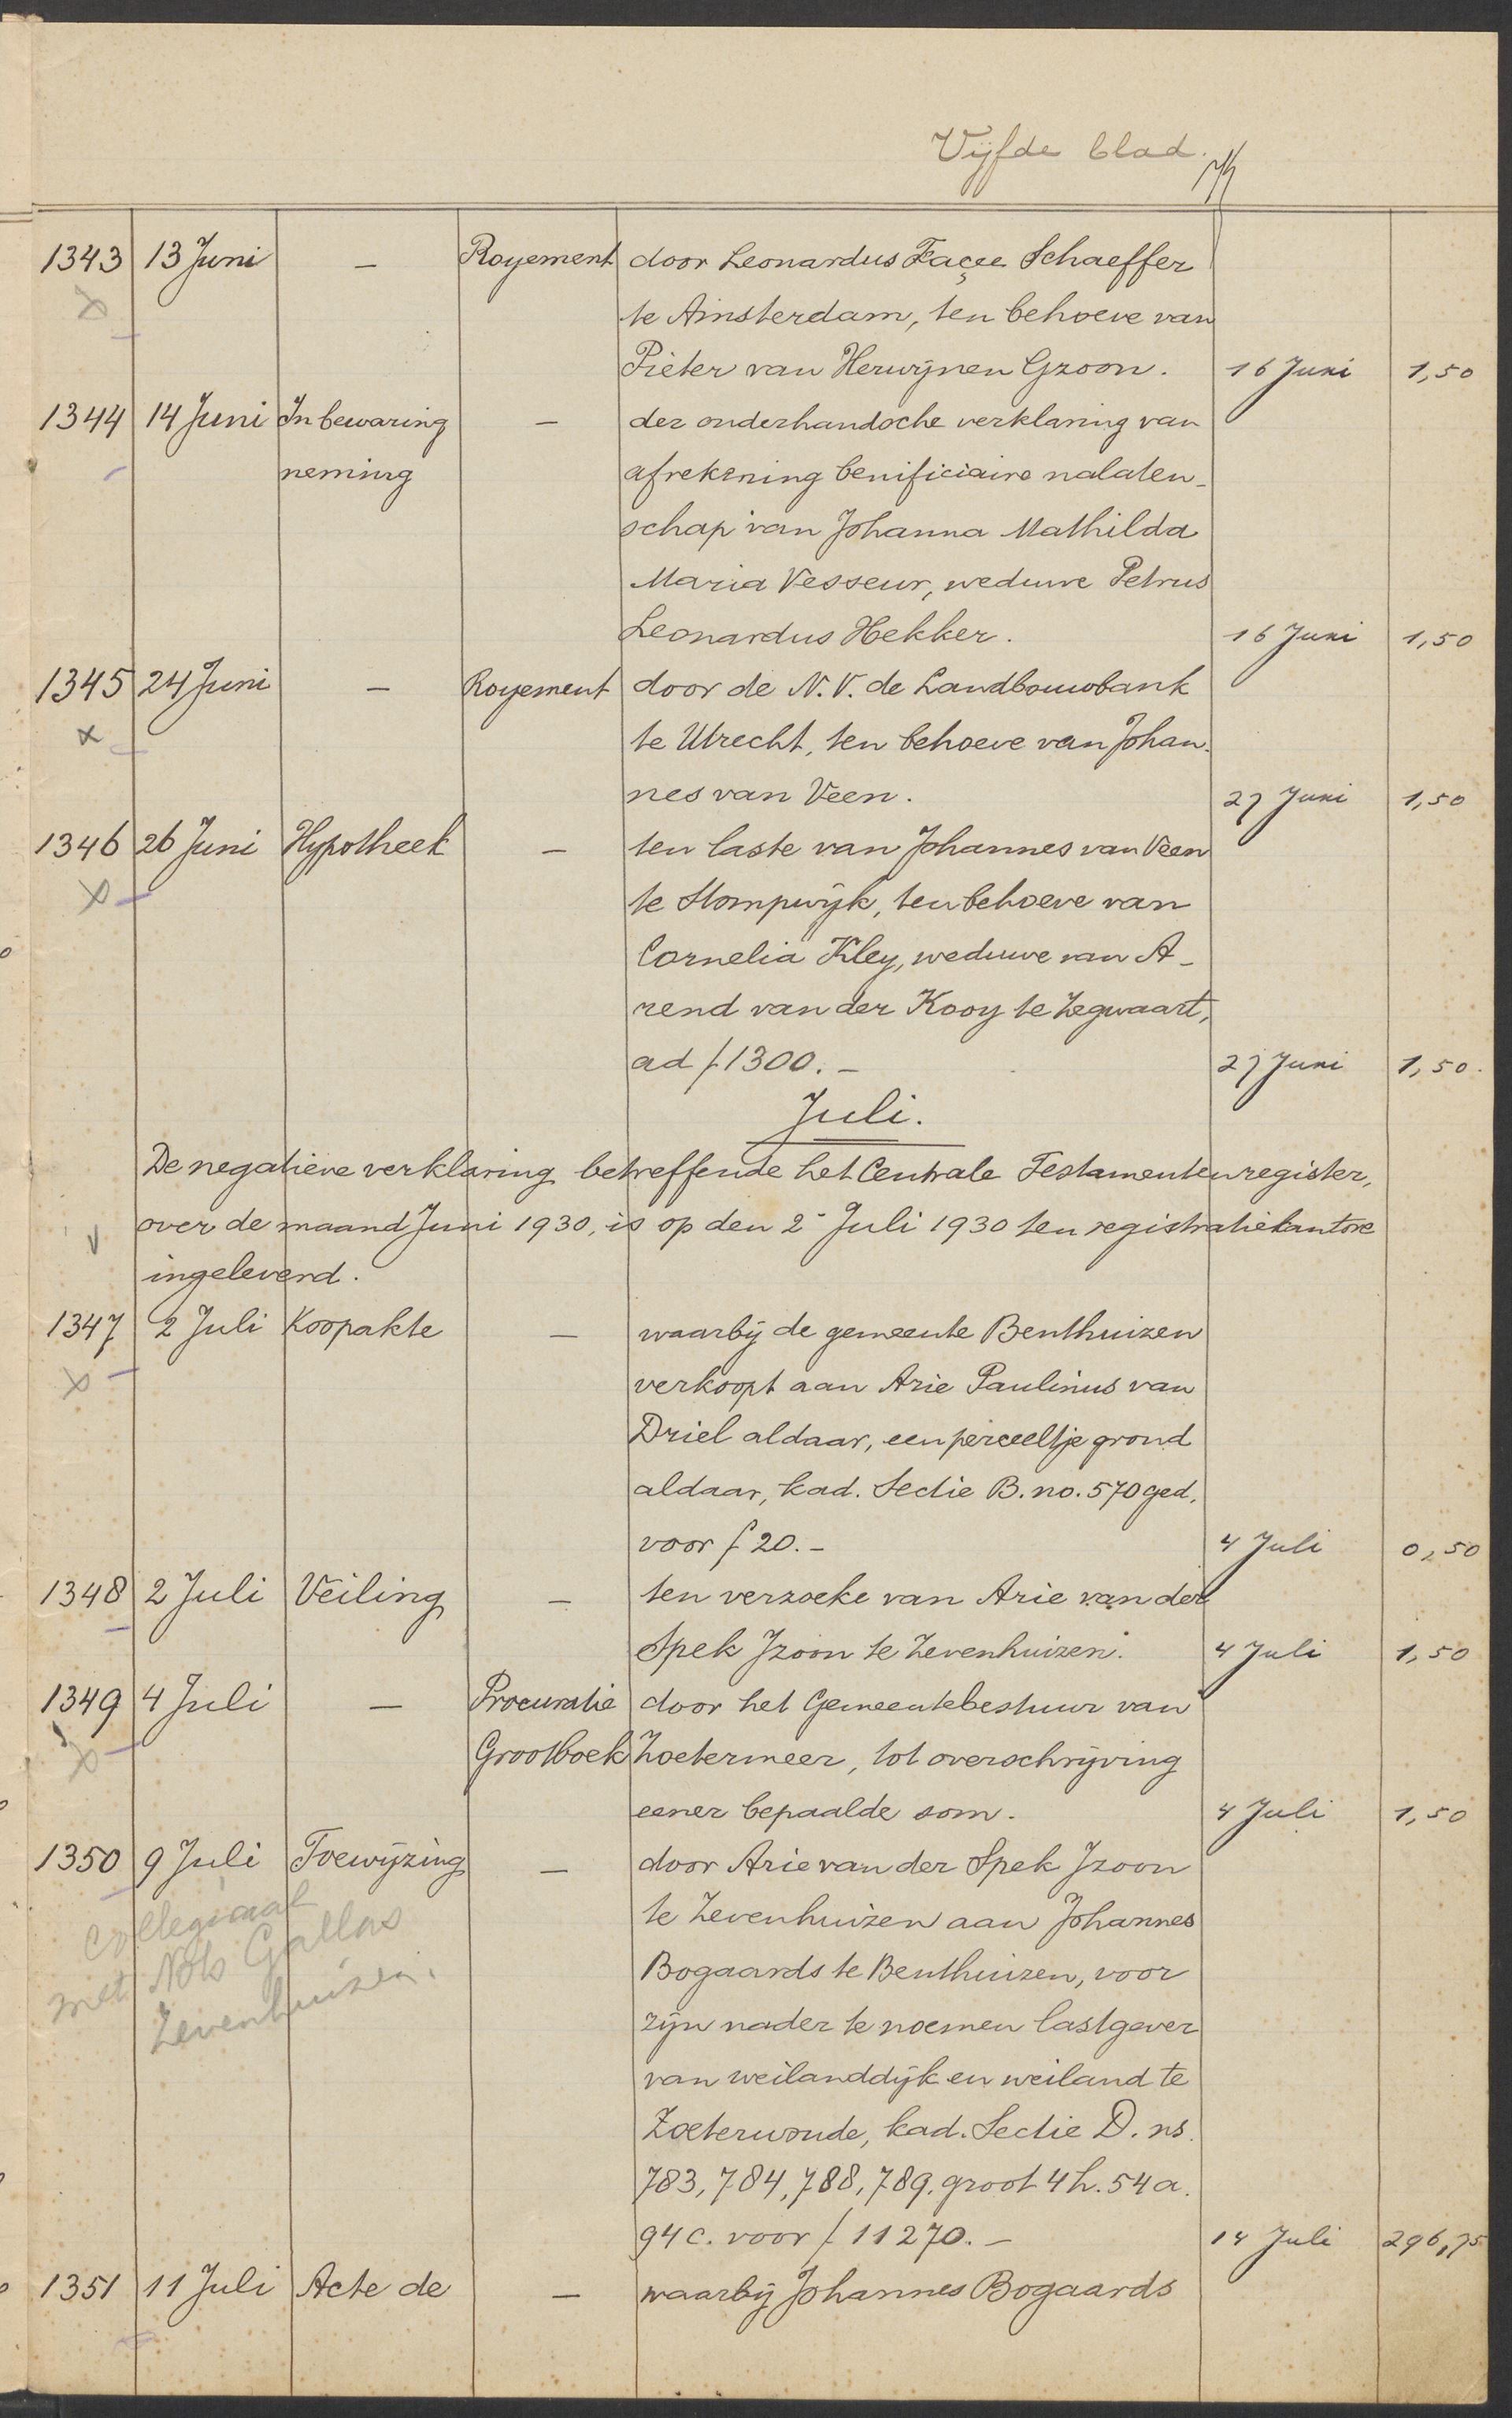 Vijfde blad.
1343 13 Juni — Royement door Leonardus Façee Schaeffer
te Amsterdam, ten behoeve van
Pieter van Herwijnen Gzoon. 16 Juni 1,50
1344 14 Juni In bewaring — der onderhandsche verklaring van
neming afrekening benificiaire nalaten-
schap van Johanna Mathilda
Maria Vesseur, weduwe Petrus
Leonardus Hekker. 16 Juni 1,50
1345 24 Juni — Royement door de N.V. de Landbouwbank
te Utrecht, ten behoeve van Johan-
nes van Veen. 27 Juni 1,50
1346 26 Juni Hypotheek — ten laste van Johannes van Veen
te Stompwijk, ten behoeve van
Cornelia Kley, weduwe van A-
rend van der Kooy te Zegwaart,
ad f 1300.- 27 Juni 1,50.
Juli.
De negatieve verklaring betreffende het Centrale Testamentenregister,
over de maand Juni 1930, is op den 2e Juli 1930 ten registratiekantore
ingeleverd.
1347 2 Juli Koopakte — waarbij de gemeente Benthuizen
verkoopt aan Arie Paulinus van
Driel aldaar, een perceeltje grond
aldaar, kad. Sectie B. no. 570 ged.
voor f 20.- 4 Juli 0,50
1348 2 Juli Veiling — ten verzoeke van Arie van der
Spek Jzoon te Zevenhuizen. 4 Juli 1,50
1349 4 Juli — Procuratie door het Gemeentebestuur van
Grootboek Zoetermeer, tot overschrijving
eener bepaalde som. 4 Juli 1,50
1350 9 Juli Toewijzing — door Arie van der Spek Jzoon
collegiaal
met Nots Gallas
Zevenhuizen.
te Zevenhuizen aan Johannes
Bogaards te Benthuizen, voor
zijn nader te noemen lastgever
van weilanddijk en weiland te
Zoeterwoude, kad. Sectie D. ns.
783, 784, 788, 789. groot 4 h. 54 a.
94 c. voor f 11270.- 14 Juli 296,75
1351 11 Juli Acte de — waarbij Johannes Bogaards